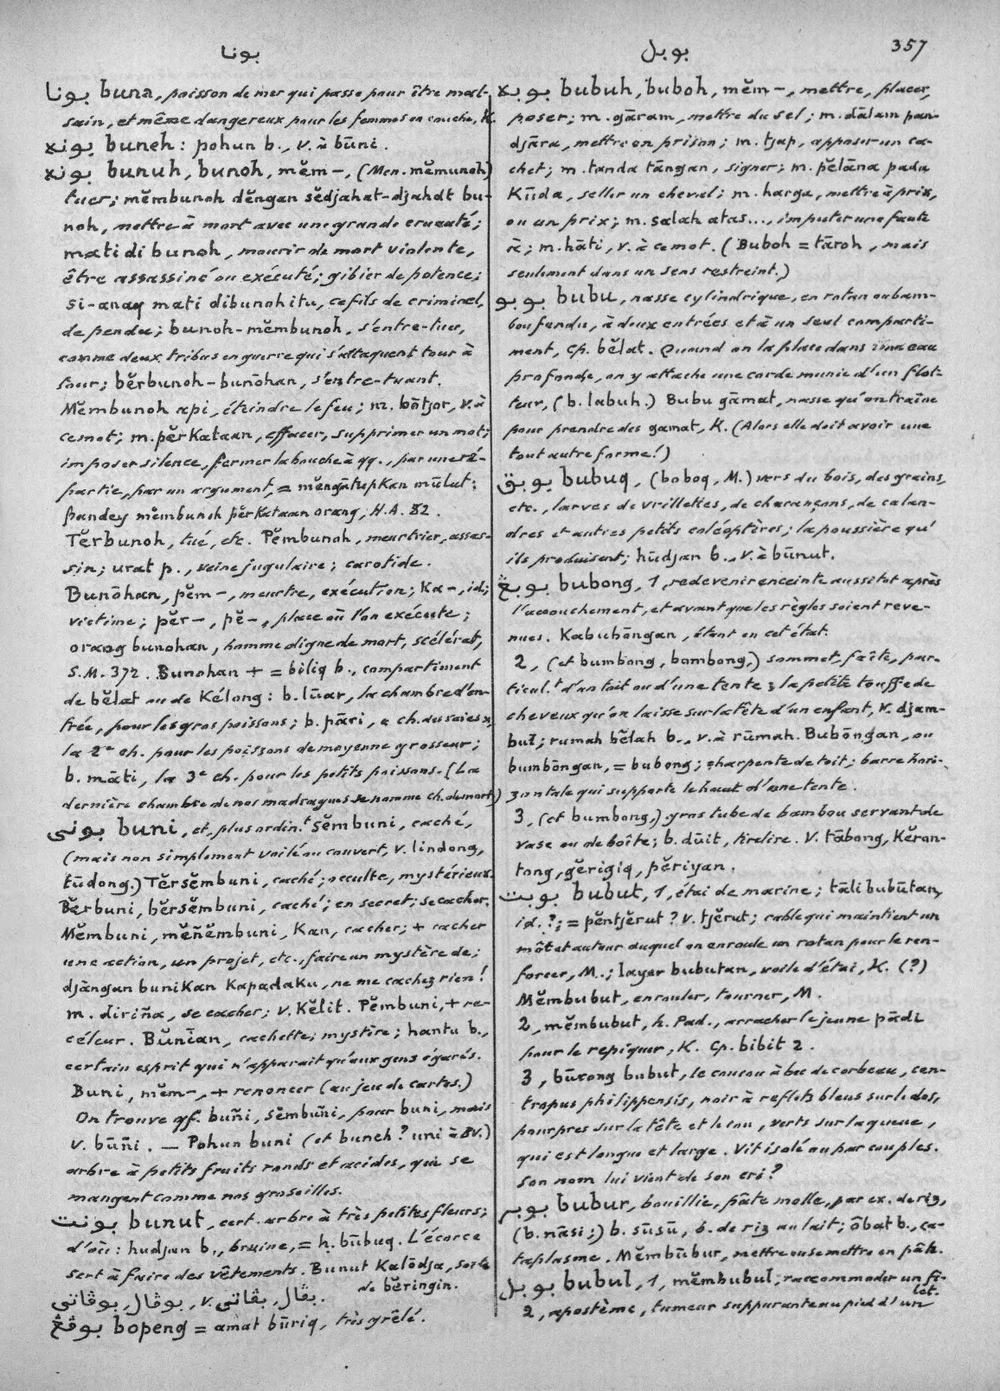 بونا
بوبل
357
بونا buna, poisson de mer qui passe pour être mal-
sain, et même dangereux pour les femmes en couche, K.
بونه buneh: pohun b., v. à būni.
بونه bunuh, bunoh, mĕm–, (Men. mĕmunoh)
tuer; mĕmbunoh dĕngan sĕdjahat-djahat bu-
noh, mettre à mort avec une grande cruauté;
mati di bunoh, mourir de mort violente,
être assassiné ou exécuté; gibier de potence;
si-anaq mati dibunoh itu, ce fils de criminel,
de pendu; bunoh-mĕmbunoh, s'entre-tuer,
comme deux tribus en guerre qui s'attaquent tour à
tour; bĕrbunoh-bunōhan, s'entre-tuant.
Mĕmbunoh api, éteindre le feu; m. bātjor, v. à
ce mot; m. pĕrkataan, effacer, supprimer un mot;
imposer silence, fermer la bouche à qq., par une ré-
partie, par un argument, = mĕngātupkan mūlut:
Pandey mĕmbunoh pĕrkataan orang, H.A. 82.
Tĕrbunoh, tué, etc. Pĕmbunoh, meurtrier, assas-
sin; urat p., veine jugulaire; carotide.
Bunōhan, pĕm–, meurtre, exécution; ka–, id;
victime; pĕr–, pĕ–, place où l'on exécute;
orang bunohan, homme digne de mort, scélérat,
S.M. 372. Bunohan + = biliq b., compartiment
de bĕlat ou de Kélong: b. lūar, la chambre d'en-
trée, pour les gros poissons; b. pāri, ch. des raies,
la 2e ch. pour les poissons de moyenne grosseur;
b. māti, la 3e ch. pour les petits poissons. (La
dernière chambre de nos madragues se nomme ch. de mort)
بوني buni, et, plus ordin.t sĕmbuni, caché,
(mais non simplement voilé ou couvert, v. lindong,
tūdong.) Tĕrsĕmbuni, caché; occulte, mystérieux.
Bĕrbuni, bĕrsĕmbuni, caché; en secret; se cacher.
Mĕmbuni, mĕñĕmbuni, Kan, cacher; + cacher
une action, un projet, etc., faire un mystère de;
djāngan bunikan kapadaku, ne me cachez rien!
m. diriña, se cacher; v. Kĕlit. Pĕmbuni, + re-
céleur. Būnian, cachette; mystère; hantu b.,
certain esprit qui n'apparait qu'aux gens égarés.
Buni, mĕm–, + renoncer (au jeu de cartes.)
On trouve qf. buñi, sĕmbuñi, pour buni, mais
v. būñi. — Pohun buni (et buneh? uni à BV.)
arbre à petits fruits ronds et acides, qui se
mangent comme nos groseilles.
بونت bunut, cert. arbre à très petites fleurs;
d'où: hudjan b., bruine, = h. būbuq. L'écorce
sert à faire des vêtements. Bunut Kalōdja, sorte
de bĕringin.
بوڤاتي, بوڤال, v. بڤاتي, بڤال.
بوڤڠ bopeng = amat būriq, très grêlé.
بوبه bubuh, buboh, mĕm–, mettre, placer,
poser; m. gāram, mettre du sel; m. dālam pan-
djāra, mettre en prison; m. tjap, apposer un ca-
chet; m. tanda tāngan, signer; m. pĕlāna pada
Kūda, seller un cheval; m. harga, mettre à prix,
ou un prix; m. salah atas..., imputer une faute
à; m. hāti, v. à ce mot. (Buboh = tāroh, mais
seulement dans un sens restreint.)
بوبو bubu, nasse cylindrique, en rotan ou bam-
bou fendu, à deux entrées et à un seul comparti-
ment, cp. bĕlat. Quand on la place dans une eau
profonde, on y attache une corde munie d'un flot-
teur, (b. labuh.) Bubu gāmat, nasse qu'on traîne
pour prendre des gamat, K. (Alors elle doit avoir une
tout autre forme!)
بوبق bubuq, (boboq, M.) vers du bois, des grains,
etc., larves de vrillettes, de charençons, de calan-
dres et autres petits coléoptères; la poussière qu'
ils produisent; hūdjan b., v. à būnut.
بوبڠ bubong, 1, redevenir enceinte aussitôt après
l'accouchement, et avant que les règles soient reve-
nues. Kabubōngan, étant en cet état.
2, (et bumbong, bombong,) sommet, faîte, par-
ticul.t d'un toit ou d'une tente; la petite touffe de
cheveux qu'on laisse sur la tête d'un enfant, v. djam-
bul; rumah bĕlah b., v. à rūmah. Bubōngan, ou
bumbōngan, = bubong; charpente de toit; barre hori-
zontale qui supporte le haut d'une tente.
3, (et bumbong,) gros tube de bambou servant de
vase ou de boîte; b. dūit, tirelire. V. tābong, Kĕron-
tong, gĕrigiq, pĕriyan.
بوبت bubut, 1, étai de marine; tāli bubūtan,
id.?; = pĕntjĕrut? v. tjĕrut; cable qui maintient un
mât et autour duquel on enroule un rotan pour le ren-
forcer, M.; layar bubutan, voile d'étai, K. (?)
Mĕmbubut, enrouler, tourner, M.
2, mĕmbubut, k. Pad., arracher le jeune pādi
pour le repiquer, K. Cp. bibit 2.
3, būrong bubut, le coucou à bec de corbeau, cen-
tropus philippensis, noir à reflets bleus sur le dos,
pourpres sur la tête et le cou, verts sur la queue,
qui est longue et large. Vit isolé ou par couples.
Son nom lui vient de son cri?
بوبر bubur, bouillie, pâte molle, par ex. de riz,
(b. nāsi;) b. sūsū, b. de riz au lait; ōbat b., ca-
taplasme. Mĕmbūbur, mettre ou se mettre en pâte.
بوبل bubul, 1, mĕmbubul; raccommoder un fi-
let.
2, apostème, tumeur suppurante au pied d'un